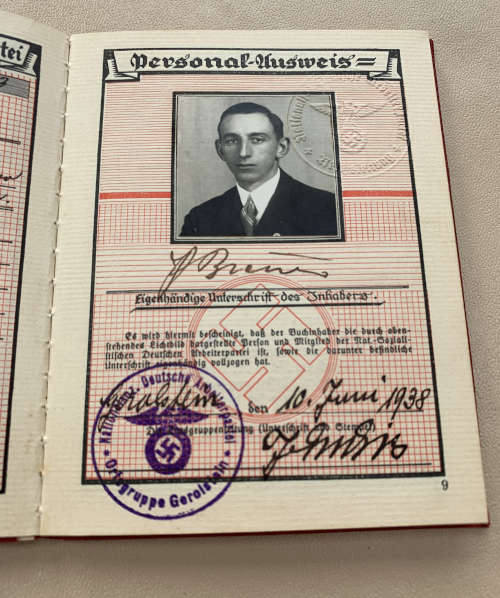 tei
Personal-Ausweis
Eigenhändige Unterschrift des Inhabers.
Es wird hiermit bescheinigt, daß der Buchinhaber die durch oben-
stehendes Lichtbild dargestellte Person und Mitglied der Nat.-Soziali-
stischen Deutschen Arbeiterpartei ist, sowie die darunter befindliche
Unterschrift eigenhändig vollzogen hat.
Gerolstein den 10. Juni 1938
Die Ortsgruppenleitung (Unterschrift und Stempel)
Deutsche Arbeiterpartei
Ortsgruppe Gerolstein
9